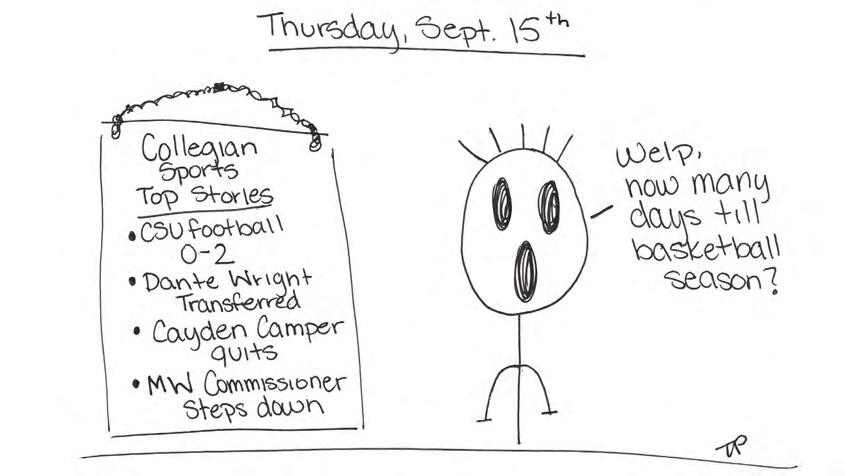 Thursday, Sept. 15th
Collegian
Sports
Top Stories
• CSU football
0-2
• Dante Wright
Transferred
• Cayden Camper
quits
• MW Commissioner
Steps down
Welp,
how many
days till
basketball
season?